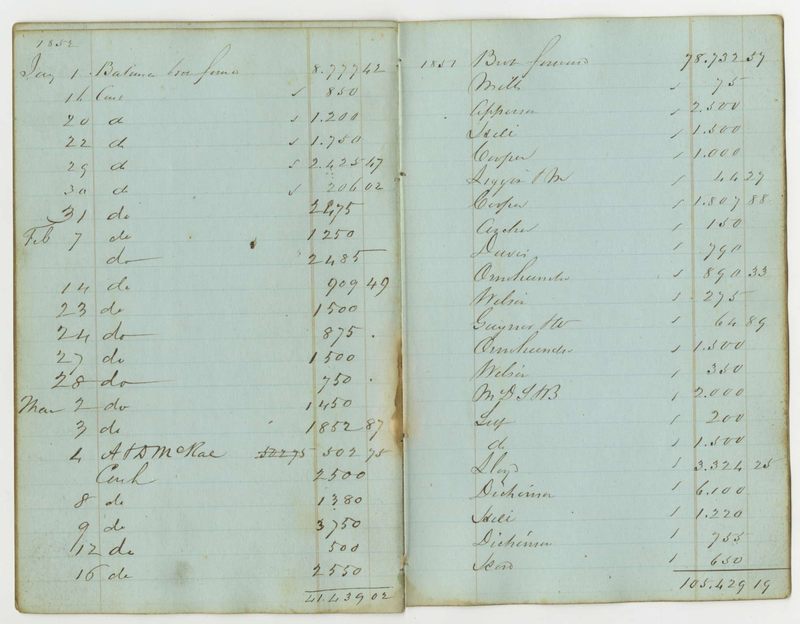 1852
Jany 1 Balance bro forw 8.777 42
16 Cash s 850
20 d s 1.200
22 d s 1.750
29 d s 2.425 47
30 d s 206 02
31 do 2475
Feb 7 do 1250
do 2485
14 do 909 49
23 do 1500
24 do 875
27 do 1500
28 do 750
Mar 2 do 1450
3 do 1852 87
4 A & D McRae 502 75
Cash 2500
8 do 1380
9 do 3750
12 do 500
16 do 2550
41.439 02
1851 Brot forward 78.732 57
75
Apperson 2.500
Hill 1.500
Cooper 1.000
44 27
Cooper 1.807 88
Archer 150
Davis 790
Omohundro 890 33
Wilson 275
64 89
Omohundro 1.500
Wilson 350
2.000
200
do 1.500
Lloyd 3.324 25
Dickinson 6.100
Hill 1.220
Dickinson 755
650
105.429 19